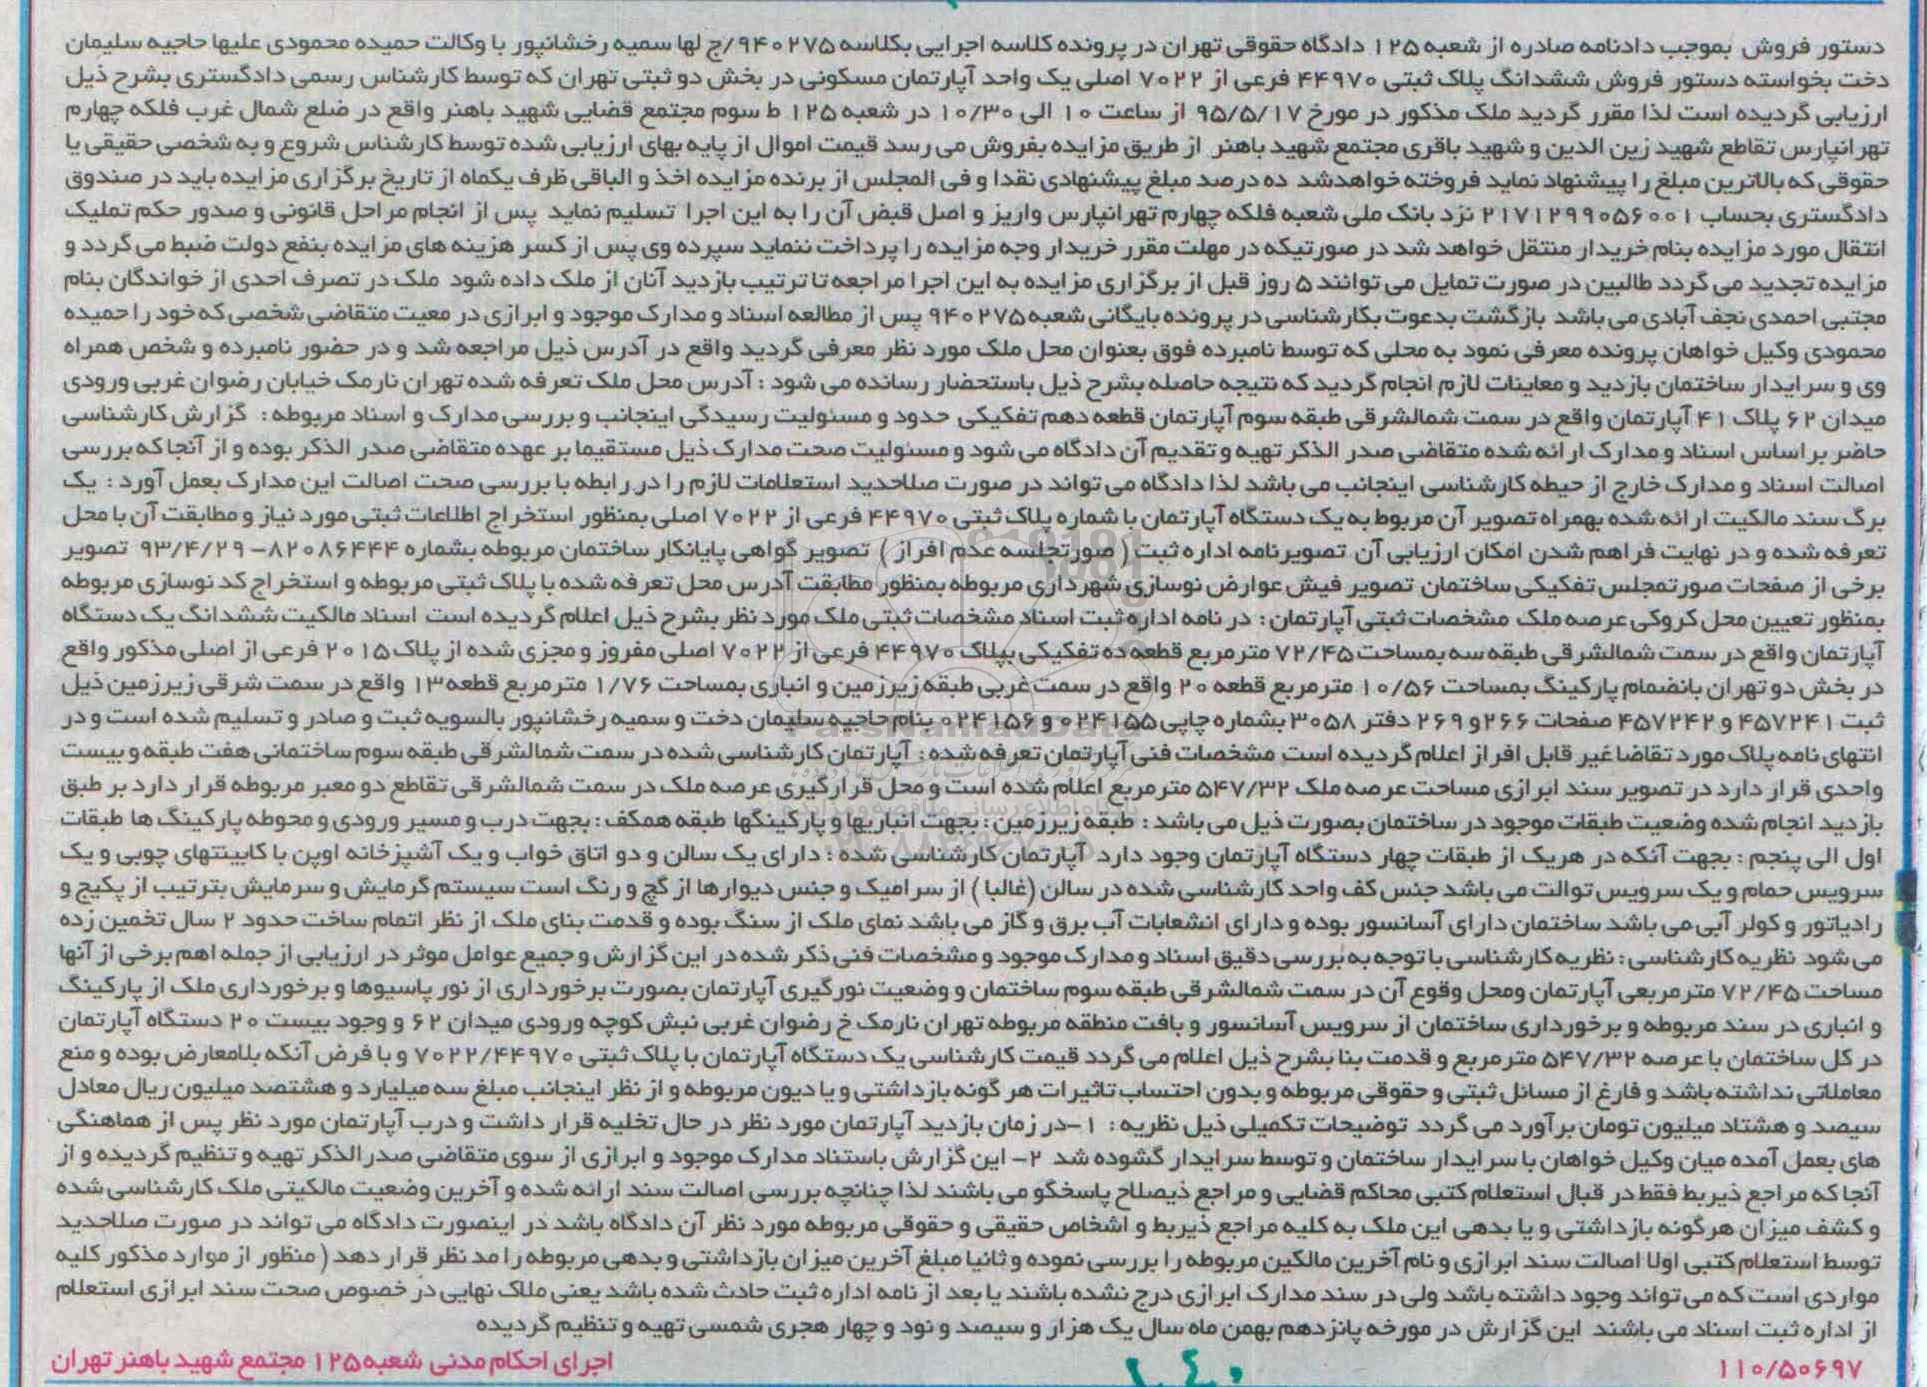 دستور فروش بموجب دادنامه صادره از شعبه ۱۲۵ دادگاه حقوقی تهران در پرونده کلاسه اجرایی بکلاسه ۹۴۰۲۷۵/ج لها سمیه رخشانپور با وکالت حمیده محمودی علیها حاجیه سلیمان
دخت بخواسته دستور فروش ششدانگ پلاک ثبتی ۴۴۹۷۰ فرعی از ۷۰۲۲ اصلی یک واحد آپارتمان مسکونی در بخش دو ثبتی تهران که توسط کارشناس رسمی دادگستری بشرح ذیل
ارزیابی گردیده است لذا مقرر گردید ملک مذکور در مورخ ۹۵/۵/۱۷ از ساعت ۱۰ الی ۱۰/۳۰ در شعبه ۱۲۵ ط سوم مجتمع قضایی شهید باهنر واقع در ضلع شمال غرب فلکه چهارم
تهرانپارس تقاطع شهید زین الدین و شهید باقری مجتمع شهید باهنر از طریق مزایده بفروش می رسد قیمت اموال از پایه بهای ارزیابی شده توسط کارشناس شروع و به شخصی حقیقی یا
حقوقی که بالاترین مبلغ را پیشنهاد نماید فروخته خواهدشد ده درصد مبلغ پیشنهادی نقدا و فی المجلس از برنده مزایده اخذ و الباقی ظرف یکماه از تاریخ برگزاری مزایده باید در صندوق
دادگستری بحساب ۲۱۷۱۲۹۹۰۵۶۰۰۱ نزد بانک ملی شعبه فلکه چهارم تهرانپارس واریز و اصل قبض آن را به این اجرا تسلیم نماید پس از انجام مراحل قانونی و صدور حکم تملیک
انتقال مورد مزایده بنام خریدار منتقل خواهد شد در صورتیکه در مهلت مقرر خریدار وجه مزایده را پرداخت ننماید سپرده وی پس از کسر هزینه های مزایده بنفع دولت ضبط می گردد و
مزایده تجدید می گردد طالبین در صورت تمایل می توانند ۵ روز قبل از برگزاری مزایده به این اجرا مراجعه تا ترتیب بازدید آنان از ملک داده شود ملک در تصرف احدی از خواندگان بنام
مجتبی احمدی نجف آبادی می باشد بازگشت بدعوت بکارشناسی در پرونده بایگانی شعبه ۹۴۰۲۷۵ پس از مطالعه اسناد و مدارک موجود و ابرازی در معیت متقاضی شخصی که خود را حمیده
محمودی وکیل خواهان پرونده معرفی نمود به محلی که توسط نامبرده فوق بعنوان محل ملک مورد نظر معرفی گردید واقع در آدرس ذیل مراجعه شد و در حضور نامبرده و شخص همراه
وی و سرایدار ساختمان بازدید و معاینات لازم انجام گردید که نتیجه حاصله بشرح ذیل باستحضار رسانده می شود : آدرس محل ملک تعرفه شده تهران نارمک خیابان رضوان غربی ورودی
میدان ۶۲ پلاک ۴۱ آپارتمان واقع در سمت شمالشرقی طبقه سوم آپارتمان قطعه دهم تفکیکی حدود و مسئولیت رسیدگی اینجانب و بررسی مدارک و اسناد مربوطه : گزارش کارشناسی
حاضر براساس اسناد و مدارک ارائه شده متقاضی صدر الذکر تهیه و تقدیم آن دادگاه می شود و مسئولیت صحت مدارک ذیل مستقیما بر عهده متقاضی صدر الذکر بوده و از آنجا که بررسی
اصالت اسناد و مدارک خارج از حیطه کارشناسی اینجانب می باشد لذا دادگاه می تواند در صورت صلاحدید استعلامات لازم را در رابطه با بررسی صحت اصالت این مدارک بعمل آورد : یک
برگ سند مالکیت ارائه شده بهمراه تصویر آن مربوط به یک دستگاه آپارتمان با شماره پلاک ثبتی ۴۴۹۷۰ فرعی از ۷۰۲۲ اصلی بمنظور استخراج اطلاعات ثبتی مورد نیاز و مطابقت آن با محل
تعرفه شده و در نهایت فراهم شدن امکان ارزیابی آن تصویرنامه اداره ثبت ( صورتجلسه عدم افراز ) تصویر گواهی پایانکار ساختمان مربوطه بشماره ۸۲۰۸۶۴۴۴- ۹۳/۴/۲۹ تصویر
برخی از صفحات صورتمجلس تفکیکی ساختمان تصویر فیش عوارض نوسازی شهرداری مربوطه بمنظور مطابقت آدرس محل تعرفه شده با پلاک ثبتی مربوطه و استخراج کد نوسازی مربوطه
بمنظور تعیین محل کروکی عرصه ملک مشخصات ثبتی آپارتمان : در نامه اداره ثبت اسناد مشخصات ثبتی ملک مورد نظر بشرح ذیل اعلام گردیده است اسناد مالکیت ششدانگ یک دستگاه
آپارتمان واقع در سمت شمالشرقی طبقه سه بمساحت ۷۲/۴۵ مترمربع قطعه ده تفکیکی بپلاک ۴۴۹۷۰ فرعی از ۷۰۲۲ اصلی مفروز و مجزی شده از پلاک ۲۰۱۵ فرعی از اصلی مذکور واقع
در بخش دو تهران بانضمام پارکینگ بمساحت ۱۰/۵۶ مترمربع قطعه ۲۰ واقع در سمت غربی طبقه زیرزمین و انباری بمساحت ۱/۷۶ مترمربع قطعه ۱۳ واقع در سمت شرقی زیرزمین ذیل
ثبت ۴۵۷۲۴۱ و ۴۵۷۲۴۲ صفحات ۲۶۶ و ۲۶۹ دفتر ۳۰۵۸ بشماره چاپی ۰۲۴۱۵۵ و ۰۲۴۱۵۶ بنام حاجیه سلیمان دخت و سمیه رخشانپور بالسویه ثبت و صادر و تسلیم شده است و در
انتهای نامه پلاک مورد تقاضا غیر قابل افراز اعلام گردیده است مشخصات فنی آپارتمان تعرفه شده : آپارتمان کارشناسی شده در سمت شمالشرقی طبقه سوم ساختمانی هفت طبقه و بیست
واحدی قرار دارد در تصویر سند ابرازی مساحت عرصه ملک ۵۴۷/۳۲ مترمربع اعلام شده است و محل قرارگیری عرصه ملک در سمت شمالشرقی تقاطع دو معبر مربوطه قرار دارد بر طبق
بازدید انجام شده وضعیت طبقات موجود در ساختمان بصورت ذیل می باشد : طبقه زیرزمین : بجهت انباریها و پارکینگها طبقه همکف : بجهت درب و مسیر ورودی و محوطه پارکینگ ها طبقات
اول الی پنجم : بجهت آنکه در هریک از طبقات چهار دستگاه آپارتمان وجود دارد آپارتمان کارشناسی شده : دارای یک سالن و دو اتاق خواب و یک آشپزخانه اوپن با کابینتهای چوبی و یک
سرویس حمام و یک سرویس توالت می باشد جنس کف واحد کارشناسی شده در سالن (غالبا ) از سرامیک و جنس دیوارها از گچ و رنگ است سیستم گرمایش و سرمایش بترتیب از پکیج و
رادیاتور و کولر آبی می باشد ساختمان دارای آسانسور بوده و دارای انشعابات آب برق و گاز می باشد نمای ملک از سنگ بوده و قدمت بنای ملک از نظر اتمام ساخت حدود ۲ سال تخمین زده
می شود نظریه کارشناسی : نظریه کارشناسی با توجه به بررسی دقیق اسناد و مدارک موجود و مشخصات فنی ذکر شده در این گزارش و جمیع عوامل موثر در ارزیابی از جمله اهم برخی از آنها
مساحت ۷۲/۴۵ مترمربعی آپارتمان ومحل وقوع آن در سمت شمالشرقی طبقه سوم ساختمان و وضعیت نورگیری آپارتمان بصورت برخورداری از نور پاسیوها و برخورداری ملک از پارکینگ
و انباری در سند مربوطه و برخورداری ساختمان از سرویس آسانسور و بافت منطقه مربوطه تهران نارمک خ رضوان غربی نبش کوچه ورودی میدان ۶۲ و وجود بیست ۲۰ دستگاه آپارتمان
در کل ساختمان با عرصه ۵۴۷/۳۲ مترمربع و قدمت بنا بشرح ذیل اعلام می گردد قیمت کارشناسی یک دستگاه آپارتمان با پلاک ثبتی ۷۰۲۲/۴۴۹۷۰ و با فرض آنکه بلامعارض بوده و منع
معاملاتی نداشته باشد و فارغ از مسائل ثبتی و حقوقی مربوطه و بدون احتساب تاثیرات هر گونه بازداشتی و یا دیون مربوطه و از نظر اینجانب مبلغ سه میلیارد و هشتصد میلیون ریال معادل
سیصد و هشتاد میلیون تومان برآورد می گردد توضیحات تکمیلی ذیل نظریه : ۱-در زمان بازدید آپارتمان مورد نظر در حال تخلیه قرار داشت و درب آپارتمان مورد نظر پس از هماهنگی
های بعمل آمده میان وکیل خواهان با سرایدار ساختمان و توسط سرایدار گشوده شد ۲- این گزارش باستناد مدارک موجود و ابرازی از سوی متقاضی صدرالذکر تهیه و تنظیم گردیده و از
آنجا که مراجع ذیربط فقط در قبال استعلام کتبی محاکم قضایی و مراجع ذیصلاح پاسخگو می باشند لذا چنانچه بررسی اصالت سند ارائه شده و آخرین وضعیت مالکیتی ملک کارشناسی شده
و کشف میزان هرگونه بازداشتی و یا بدهی این ملک به کلیه مراجع ذیربط و اشخاص حقیقی و حقوقی مربوطه مورد نظر آن دادگاه باشد در اینصورت دادگاه می تواند در صورت صلاحدید
توسط استعلام کتبی اولا اصالت سند ابرازی و نام آخرین مالکین مربوطه را بررسی نموده و ثانیا مبلغ آخرین میزان بازداشتی و بدهی مربوطه را مد نظر قرار دهد ( منظور از موارد مذکور کلیه
مواردی است که می تواند وجود داشته باشد ولی در سند مدارک ابرازی درج نشده باشند یا بعد از نامه اداره ثبت حادث شده باشد یعنی ملاک نهایی در خصوص صحت سند ابرازی استعلام
از اداره ثبت اسناد می باشند این گزارش در مورخه پانزدهم بهمن ماه سال یک هزار و سیصد و نود و چهار هجری شمسی تهیه و تنظیم گردیده
۱۱۰/۵۰۶۹۷ اجرای احکام مدنی شعبه ۱۲۵ مجتمع شهید باهنر تهران
ParsNamadData